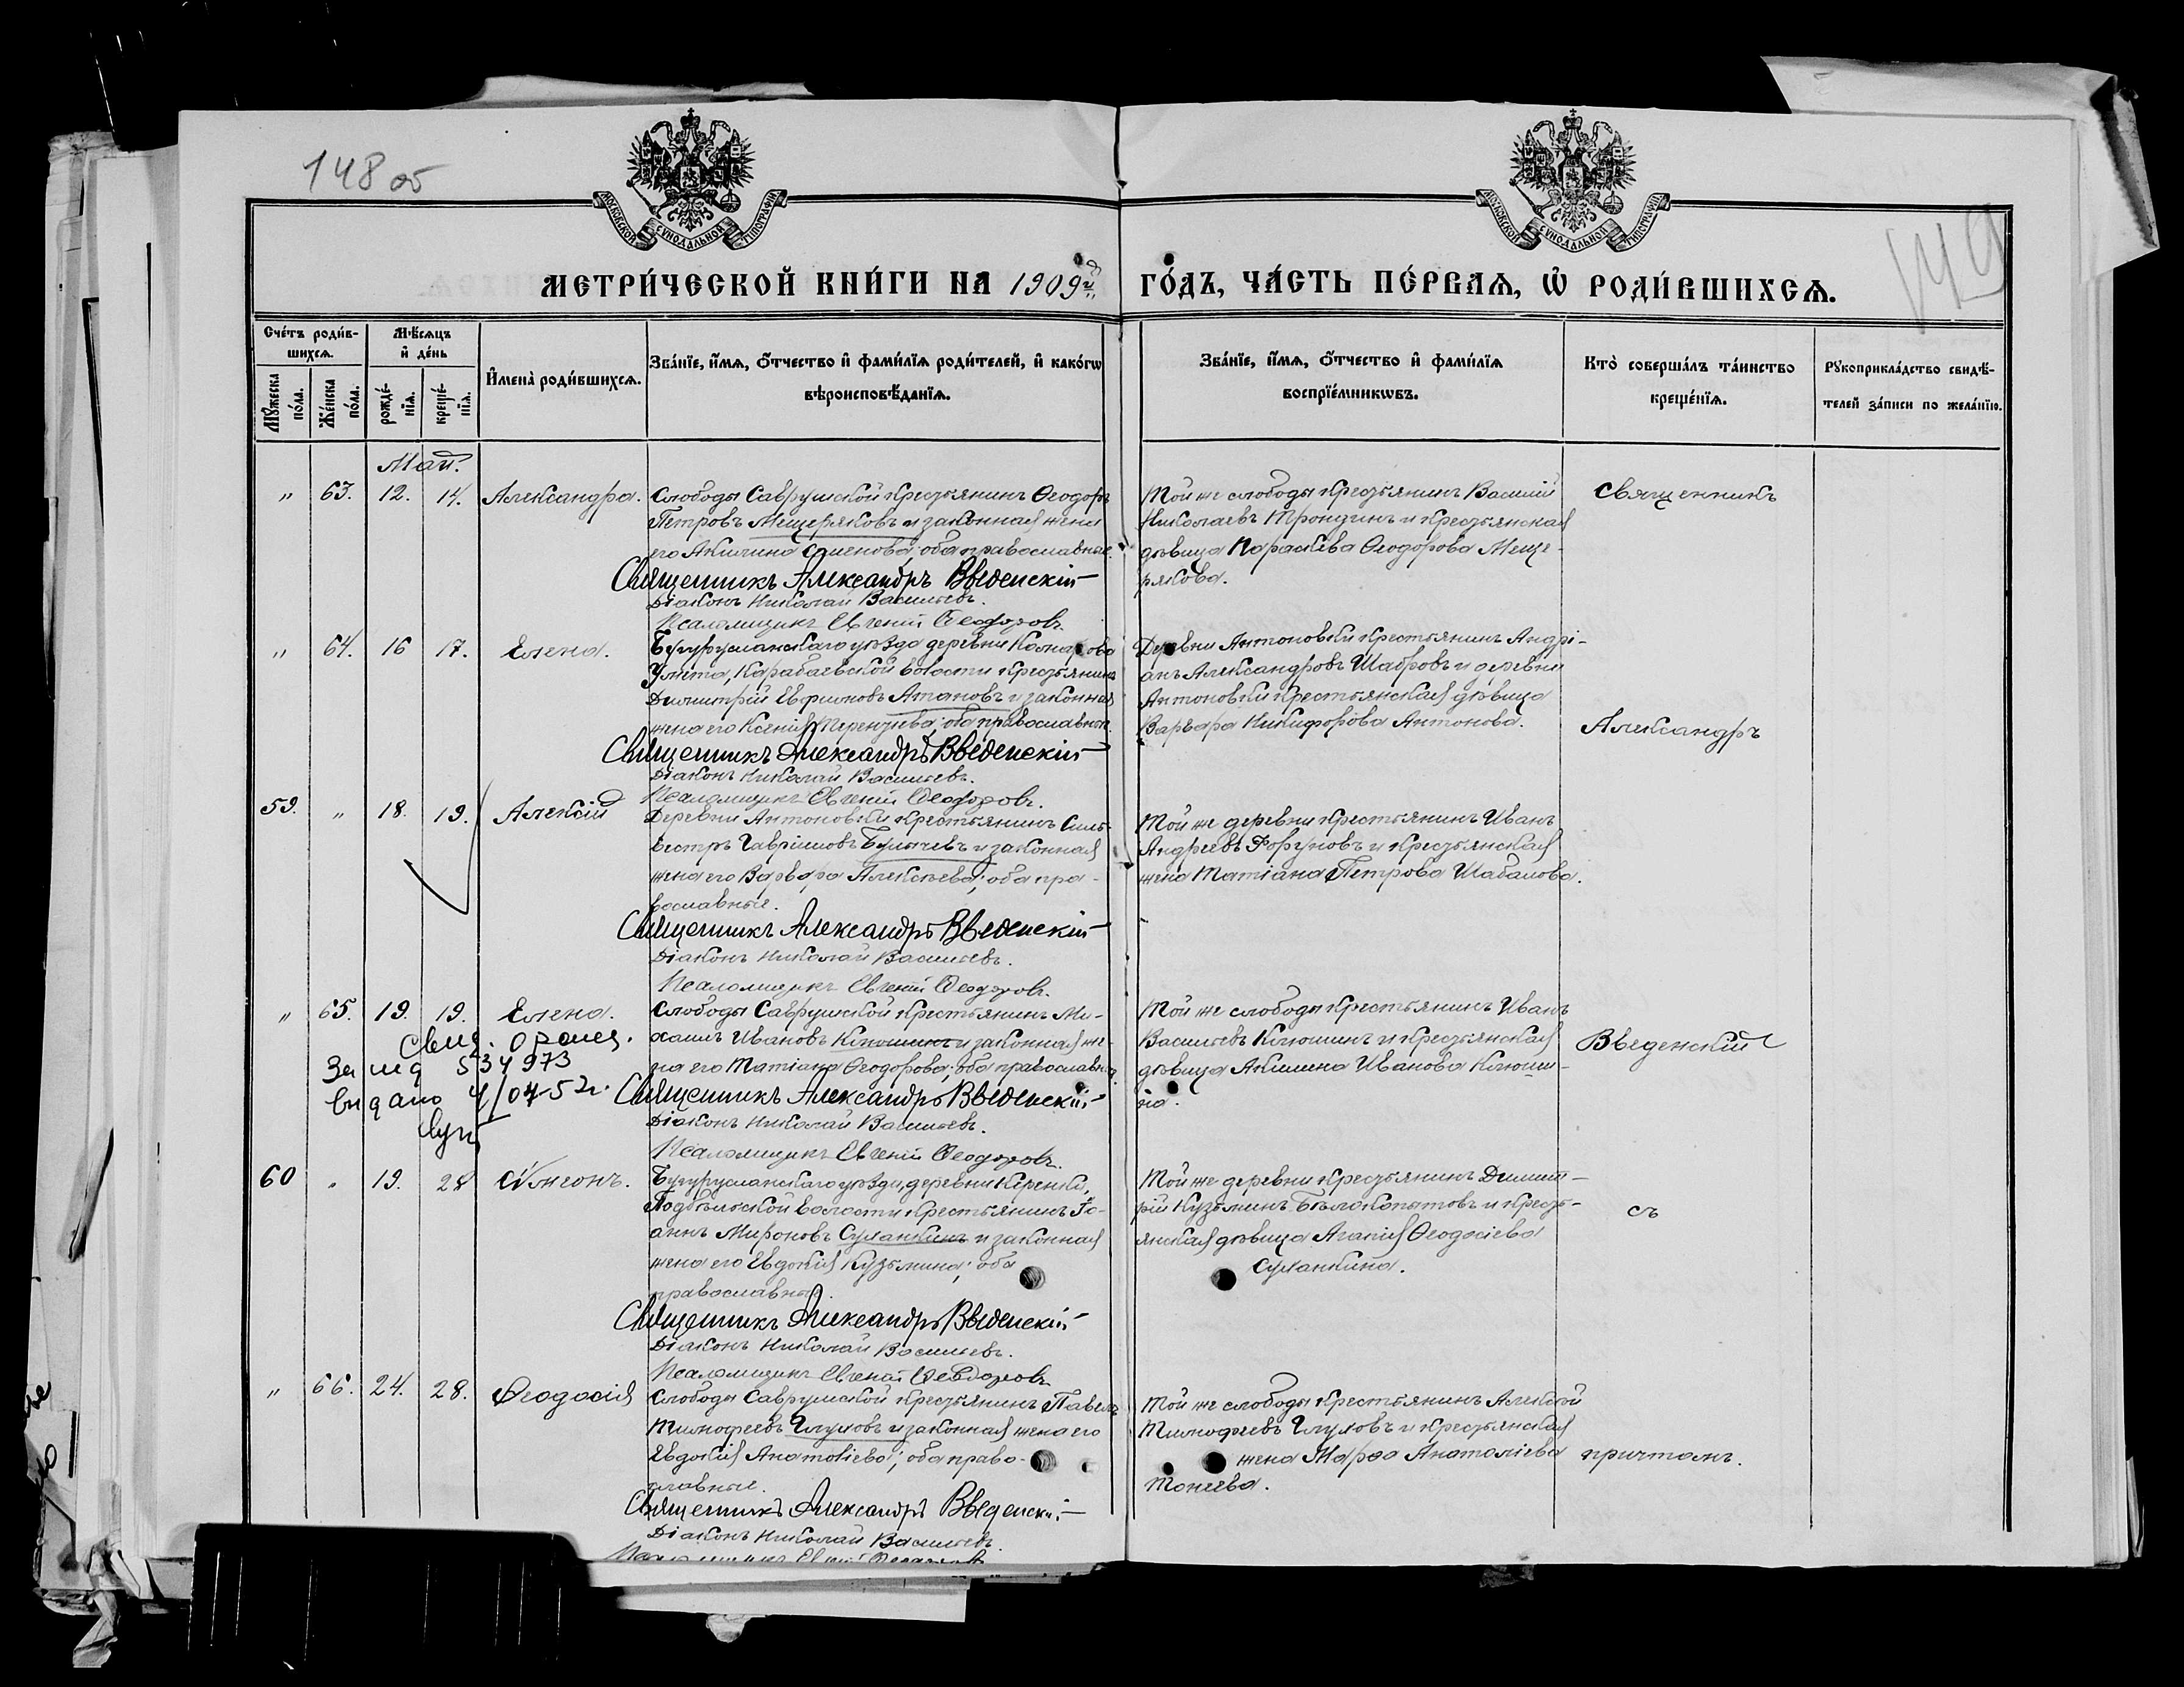 148 об
149
МОСКОВСКОЙ СУНОДАЛЬНОЙ ТИПОГРАФІИ
МОСКОВСКОЙ СУНОДАЛЬНОЙ ТИПОГРАФІИ
МЕТРИ́ЧЕСКОЙ КНИ́ГИ НА 1909й ГО́ДЪ, ЧА́СТЬ ПЕ́РВАѦ, Ѽ РОДИ́ВШИХСѦ.
Сче́тъ роди́в-
шихсѧ.
Мѣ́сяцъ
и҆ де́нь
Му́жеска
по́ла.
Же́нска
по́ла.
рожде́-
нїѧ.
креще́-
нїѧ.
И҆мена̀ роди́вшихсѧ.
Зва́нїе, и҆́мѧ, ѻ҆́тчество и҆ фами́лїѧ роди́телей, и҆ како́гѡ
вѣроисповѣ́данїѧ.
Зва́нїе, и҆́мѧ, ѻ҆́тчество и҆ фами́лїѧ
воспрїе́мникѡвъ.
Кто̀ соверша́лъ та́инство
креще́нїѧ.
Рꙋкоприкла́дство свидѣ́-
телей за́писи по жела́нїю.
Май.
" 63. 12. 14. Александра.
Слободы Саврушской крестьянинъ Ѳеодоръ
Петровъ Мещеряковъ и законная жена
его Акилина Семенова; оба православные.
Священникъ Александръ Введенскій
Діаконъ Николай Васильевъ.
Псаломщикъ Евгеній Ѳеодоровъ
Той же слободы крестьянинъ Василій
Николаевъ Трондинъ и крестьянская
дѣвица Параскева Ѳеодорова Меще-
рякова.
Священникъ
" 64. 16 17. Елена.
Бугурусланскаго уѣзда деревни
Умёта, Карабаевской волости крестьянинъ
Димитрій Евфимовъ Атановъ и законная
жена его Ксенія Терентьева; оба православные.
Священникъ Александръ Введенскій
Діаконъ Николай Васильевъ.
Псаломщикъ Евгеній Ѳеодоровъ.
Деревни Антоновки крестьянинъ Андрі-
анъ Александровъ Шабровъ и деревни
Антоновки крестьянская дѣвица
Варвара Никифорова Антонова.
Александръ
59. " 18. 19. Алексій
Деревни Антоновки крестьянинъ Силь-
вестръ Гавріиловъ Булычевъ и законная
жена его Варвара Алексѣева; оба пра-
вославные.
Священникъ Александръ Введенскій
Діаконъ Николай Васильевъ.
Псаломщикъ Евгеній Ѳеодоровъ.
Той же деревни крестьянинъ Иванъ
Андреевъ Форуновъ и крестьянская
жена Татіана Петрова Шабалова.
" 65. 19. 19. Елена.
Слободы Саврушской крестьянинъ Ми-
хаилъ Ивановъ Клюшинъ и законная же-
на его Татіана Ѳеодорова; оба православны.
Священникъ Александръ Введенскій
Діаконъ Николай Васильевъ.
Псаломщикъ Евгеній Ѳеодоровъ.
Свид. о рожд.
За 534973
выдано 4/04-52г.
Той же слободы крестьянинъ Иванъ
Васильевъ Клюшинъ и крестьянская
дѣвица Акилина Иванова Клюши-
на.
Введенскій
60 " 19. 28
Бугурусланскаго уѣзда, деревни Керенки,
Подбѣльской волости крестьянинъ Іо-
аннъ Мироновъ Суланкинъ и законная
жена его Евдокія Кузьмина; оба
православны.
Священникъ Александръ Введенскій
Діаконъ Николай Васильевъ.
Псаломщикъ Евгеній Ѳеодоровъ
Той же деревни крестьянинъ Димит-
рій Кузьминъ Бѣлокопытовъ и кресть-
янская дѣвица Агапія Ѳеодосіева
Суланкина.
съ
" 66. 24. 28. Ѳеодосія
Слободы Саврушской крестьянинъ Павелъ
Тимофеевъ Глуховъ и законная жена его
Евдокія Анатоліева; оба право-
славные.
Священникъ Александръ Введенскій
Діаконъ Николай Васильевъ.
Псаломщикъ Евгеній Ѳеодоровъ
Той же слободы крестьянинъ Алексѣй
Тимофеевъ Глуховъ и крестьянская
жена Марѳа Анатоліева
Тонеева.
причтомъ.